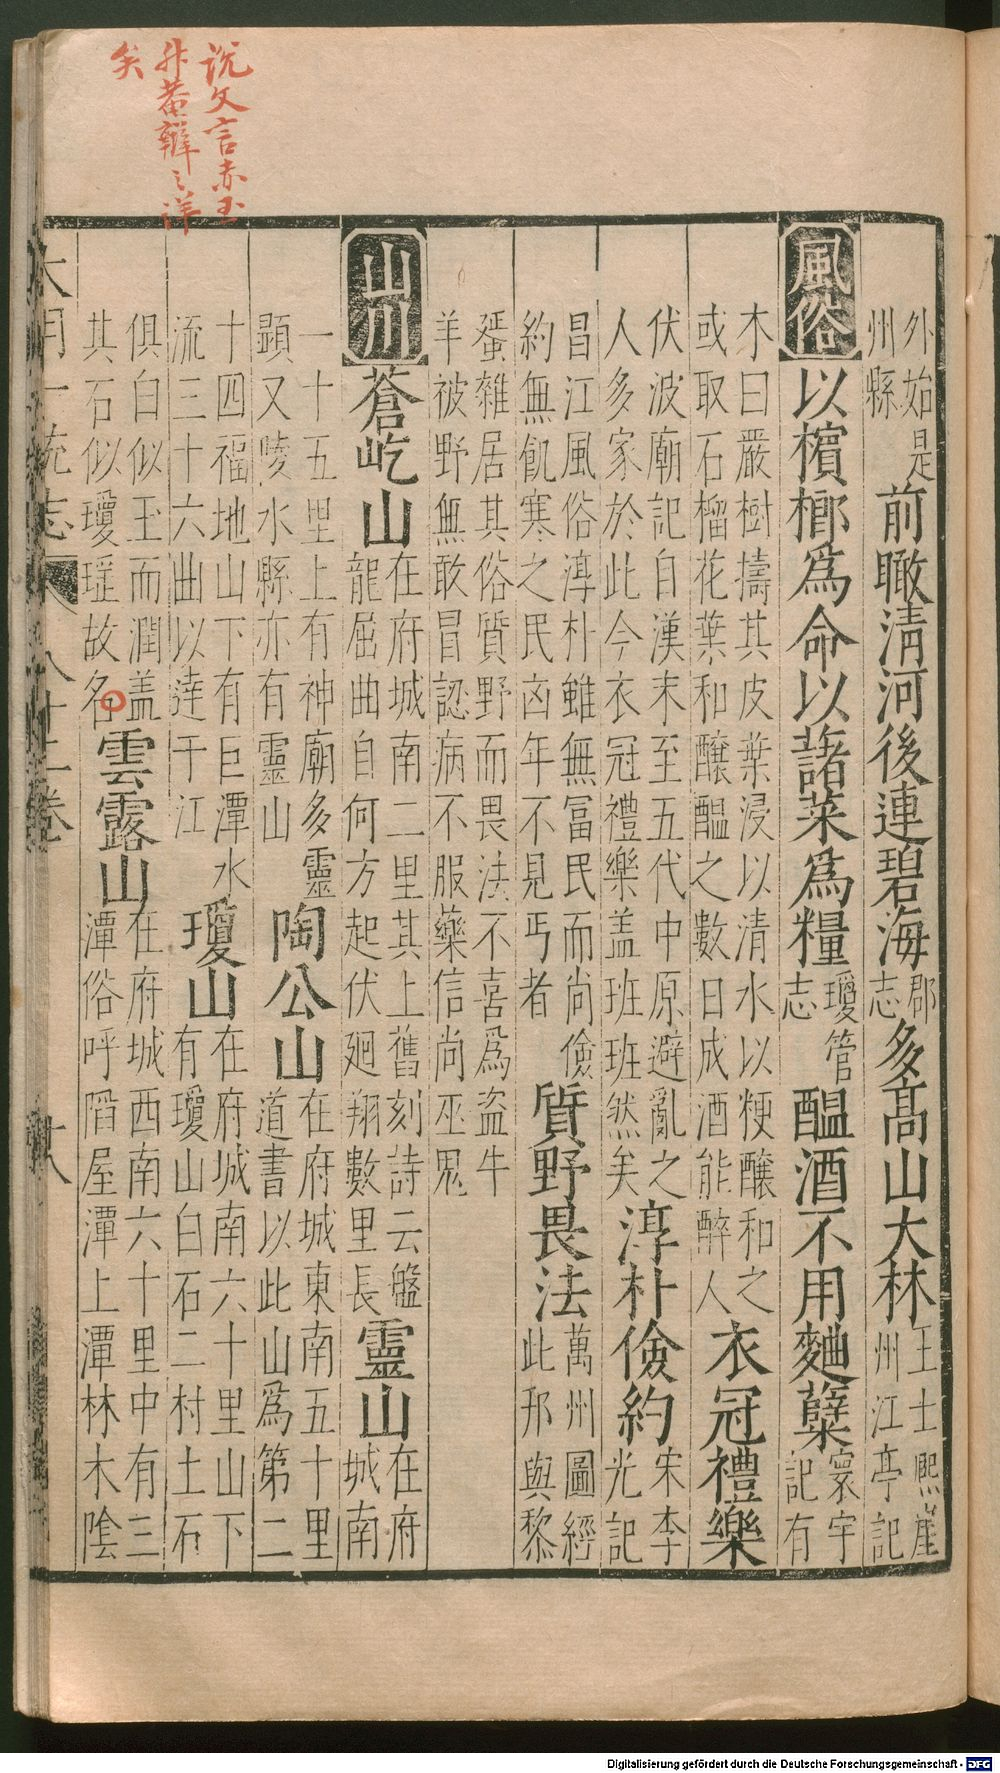 説文言赤玉
升菴辯之詳
矣
外始是
州縣
前瞰清河後連碧海
郡
志
多高山大林
王士熙崖
州江亭記
風俗
以檳榔爲命以藷菜爲糧
瓊管
志
醖酒不用麯蘖
寰宇
記有
木曰嚴樹擣其皮葉浸以清水以粳釀和之
或取石榴花葉和釀醖之數日成酒能醉人
衣冠禮樂
伏波廟記自漢末至五代中原避亂之
人多家於此今衣冠禮樂盖班班然矣
淳朴儉約
宋李
光記
昌江風俗淳朴雖無冨民而尚儉
約無飢寒之民凶年不見丐者
質野畏法
萬州圖經
此邦與黎
蜑雜居其俗質野而畏法不喜爲盗牛
羊被野無敢冒認病不服藥信尚巫鬼
山川
蒼屹山
在府城南二里其上舊刻詩云艦
龍屈曲自何方起伏廻翔數里長
靈山
在府
城南
一十五里上有神廟多靈
顯又陵水縣亦有靈山
陶公山
在府城東南五十里
道書以此山爲第二
十四福地山下有巨潭水
流三十六曲以達于江
瓊山
在府城南六十里山下
有瓊山白石二村土石
俱白似玉而潤盖
其石似瓊瑤故名
雲露山
在府城西南六十里中有三
潭俗呼屋潭上潭林木陰
大明一統志 八十二卷 十八
Digitalisierung gefördert durch die Deutsche Forschungsgemeinschaft - DFG